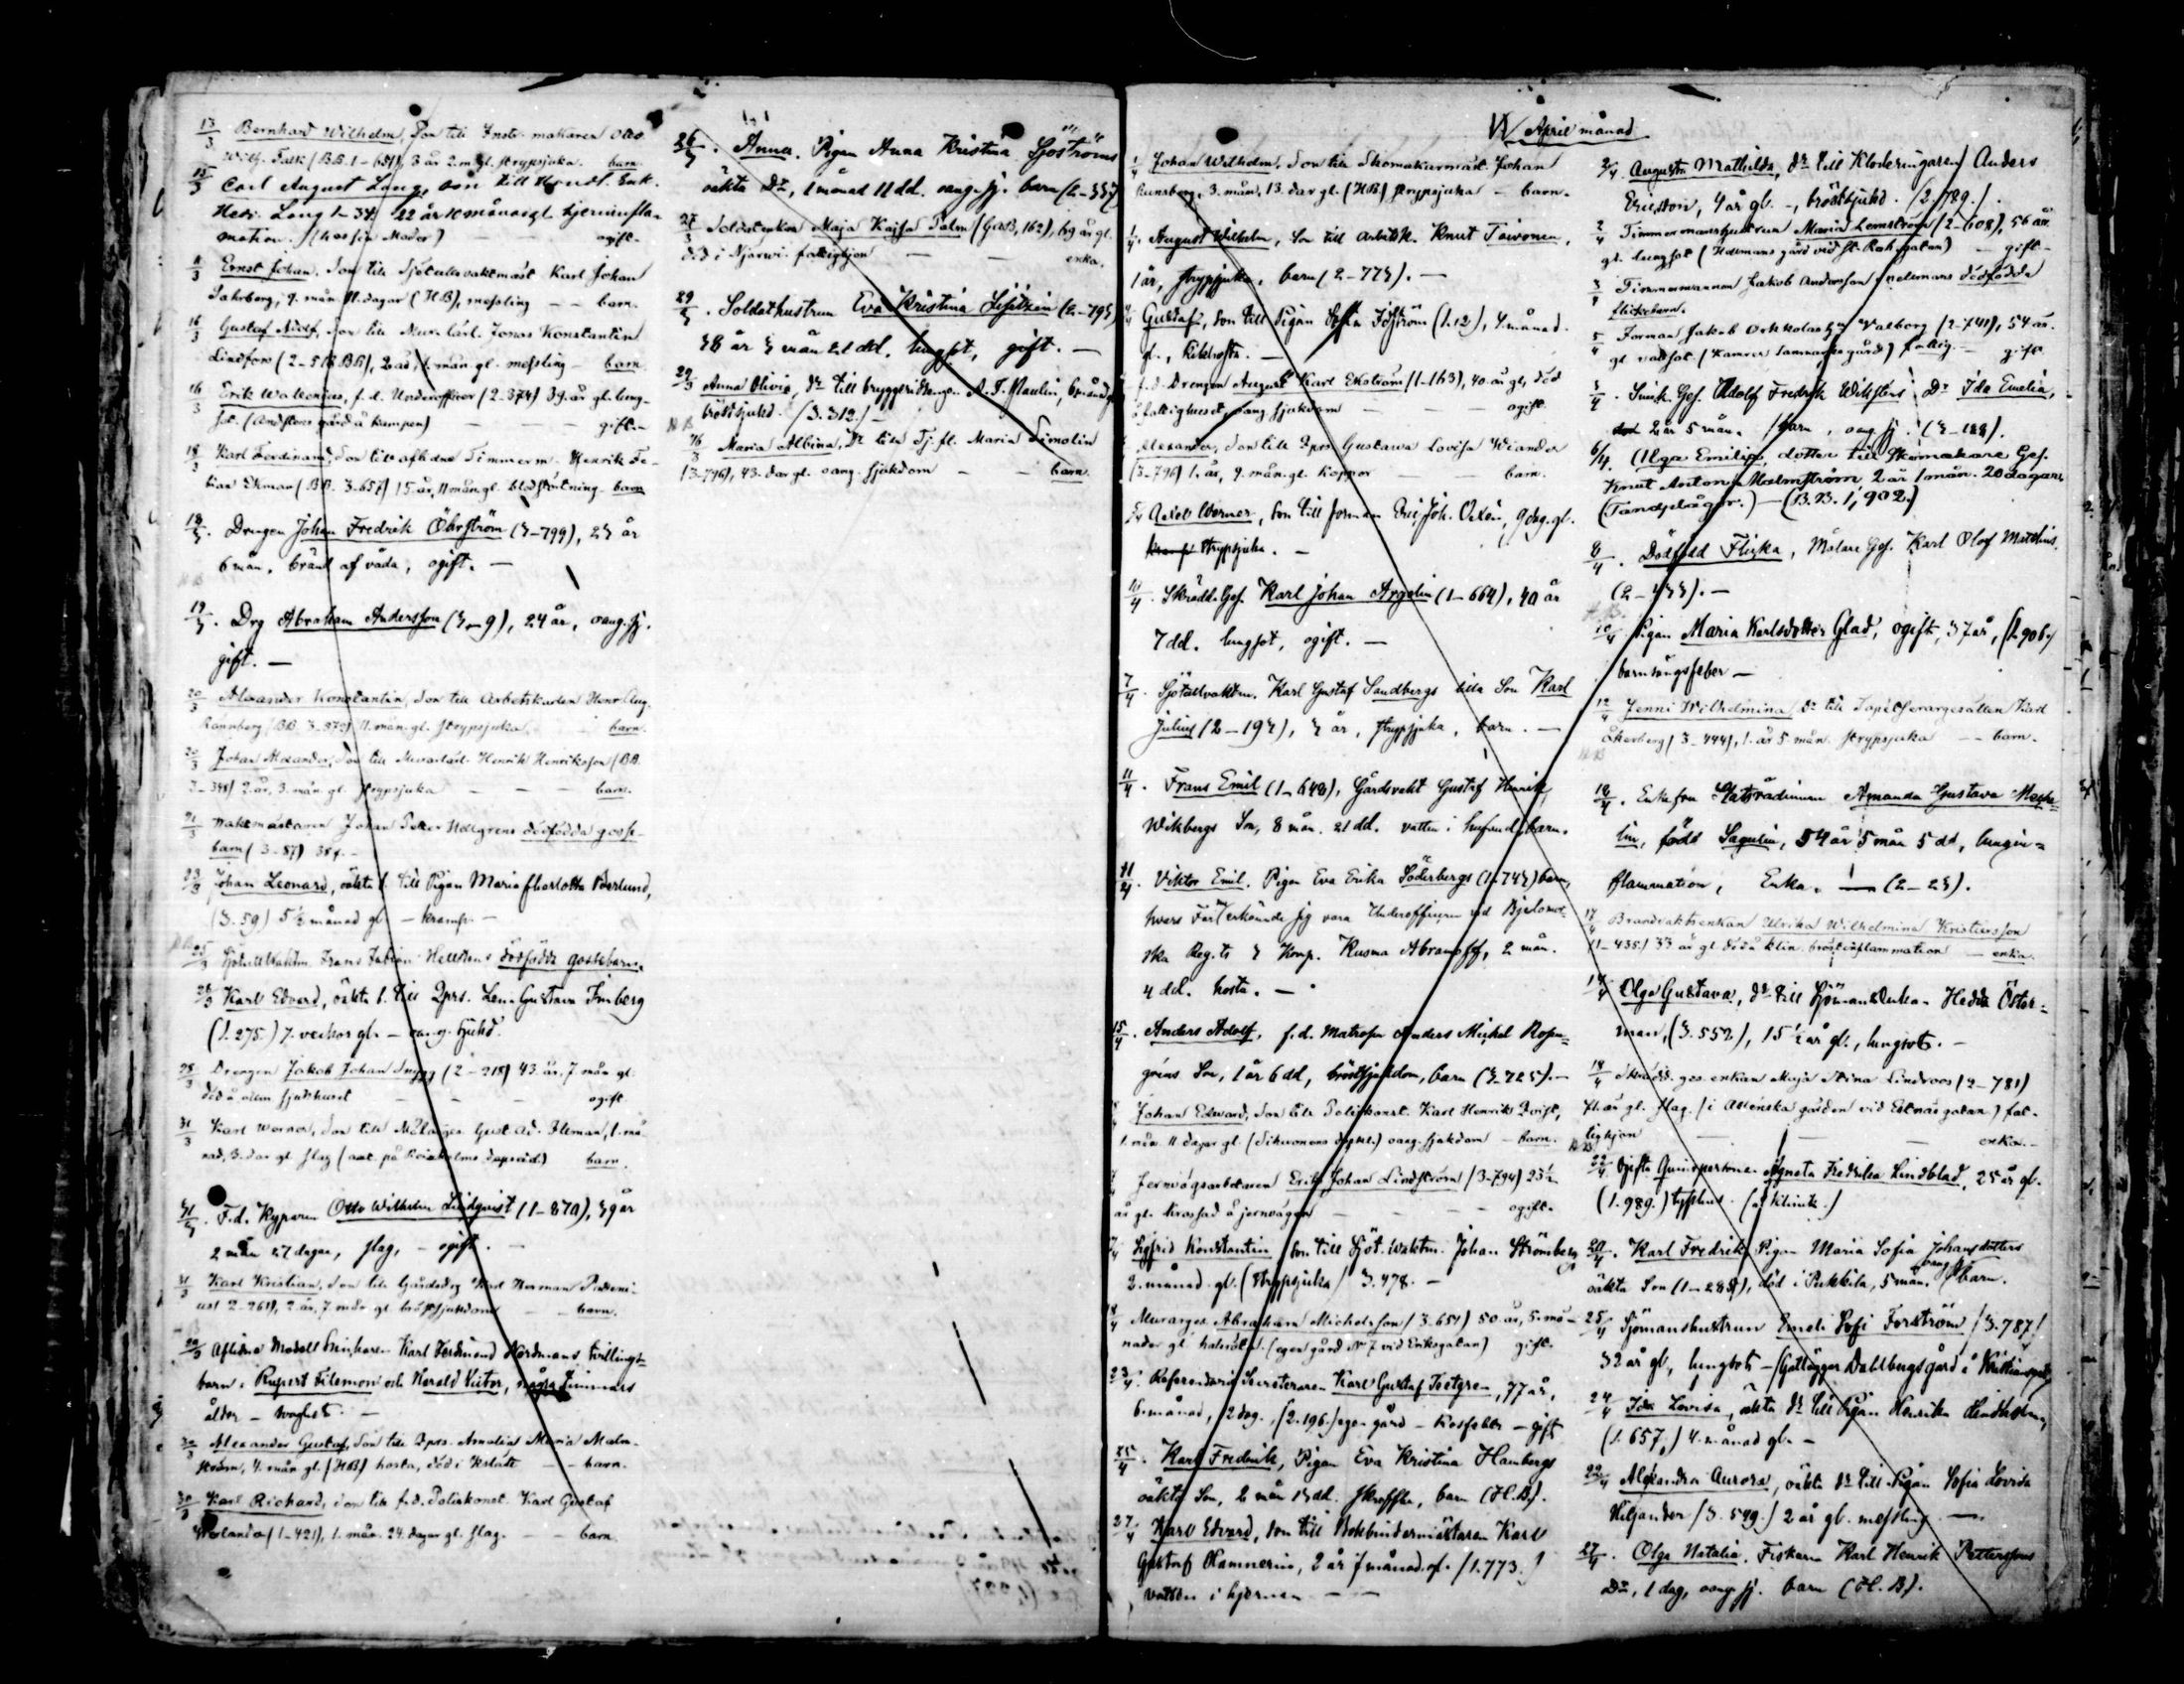 13/3 Bernhard Wilhelm, Son till Instr. makaren Otto
Wilh. Falk (BB. 1-681) 3 år 2. m. gl. strypsjuka. barn.
Carl August Lang, son till Handl. Enk.
Hedv. Lang 1-34 22 år 10 månar gl. hjerninfla-
mation. (hos sin Moder) ogift.
Ernst Johan, Son till Sjötullsvaktmäst Karl Johan
Sahrberg, 9. mån. 11. dagar (HB), messling - - barn.
16/3 Gustaf Adolf, son till Murarlärl. Jonas Konstantin
Lindfors (2-516 BB), 2 år, mån gl. messling - barn.
16/3 Erik Wallenius, f.d. Underofficer (2-374) 39. år gl. lung-
sot. (Andsténs gård å kampen) - - - gift.-
18/3 Karl Ferdinand, Son till aflidne Timmerm. Henrik Fa-
bian Ekman (BB. 3-657) 15 år, 11 mån gl. blodstörtning. barn
18/3. Drengen Johan Fredrik Öhrström (3-799), 23 år
6 mån. bränd af våda, ogift. -
19/3. Drg Abraham Andersson (3-9), 24 år, oang. sj.
gift. -
20/3 Alexander Konstantin, Son till Arbetskarlen Henr. Aug.
Rannberg (BB. 3-272) 11. mån. gl. strypsjuka. barn.
20/3 Johan Alexander, Son till Murarlärl. Henrik Henriksson (BB.
2-348) 2. år, 3. mån. gl. strypsjuka - - - barn.
21/3 Waktmästaren Johan Peter Hellgrens dödfödda gosse-
barn (3-87) 387. -
23/3 Johan Leonard, oäkta s. till Pigan Maria Charlotta Berlund,
(3.59) 5½ månad gl. - kramp. -
25/3 Sjötullvaktm. Frans Fabian Hellstens dödfödda gossebarn.
26/3 Karl Edvard, oäkta s. till Qprs. Lena Gustava Imberg
(1.275.) 7. veckor gl. - oang. sjukd.
28/3 Drengen Jakob Johan Snygg (2-218) 43. år, 7. mån gl.
död å allm sjukhuset - - - ogift.
31/3 Karl Werner, Son till Målargs. Gust. Ad. Illman, 1. må-
nad, 3. dar gl. slag barn.
31/3. F.d. Kyparen Otto Wilhelm Lindquist (1-870), 39 år
2 mån 27 dagar, slag, - ogift. -
31/3 Karl Kristian, Son till Gårdsdrg Karl Herman
2-261), 2. år, 7. mån gl. bröstsjukdom - - barn.
Aflidne Modell Snickaren Karl Ferdinand Nordmans tvillings-
barn. Rupert Filemon och Harald Victor, några timmars
ålder - svaghet. -
30/3 Alexander Gustaf, Son till Qprs. Amalia Maria Malm-
ström, 4. mån gl. (HB) hosta, död i - - barn.
30/3 Karl Richard, Son till f.d. Poliskonst. Karl Gustaf
Wolanda (1-421), 1. mån. 24. dagar gl. slag. - - barn.
26/3. Anna. Pigan Anna Kristina Sjöströms
oäkta Dr, 1 månad 11 dd. oang. sj. barn (2-357)
27/3 Soldatenkan Maja Kajsa Palm (GAB, 162), 69 år gl.
död i Njurwi. fattighjon - - enka.
29/3. Soldathustrun Eva Kristina (2-795)
38 år 3 mån 21 dd. lungsot, gift. -
29/3 Anna Olivia, Dr till bryggeridrengen A. F. Maulin, 6 mån gl.
bröstsjukd. (3.312.) -
16/3 Maria Albina, Dr till Tj. fl. Maria Simolin
(3-796), 43. dar gl. oang. sjukdom - - barn.
April månad
1/4 Johan Wilhelm, Son till Skomakarmäst. Johan
Runeberg, 3. mån, 13. dar gl. (HB) strypsjuka - barn.
1/4. August Wilhelm, Son till arbetsk. Knut Toivonen,
1 år, strypsjuka, barn (2-773). -
Gustaf, Son till Pigan Sofia (1.12), 4. månad.
gl., kikhosta. -
f.d. Drengen August Karl Ekström (1-163), 40. år gl, död
å fattighuset, oang. sjukdom - - ogift.
Alexander, Son till Qprs. Gustava Lovisa Wiander
(3-796) 1. år, 9. mån. gl. koppor - - barn.
Axel Werner, Son till forman Eric Joh. Oxén, 9 dag. gl.
strypsjuka. -
10/4. Skrädd. Ges. Karl Johan Argelin (1-664), 40 år
7 dd. lungsot, ogift. -
7/4. Sjötullvaktm. Karl Gustaf Sandbergs lilla Son Karl
Julius (2-193), 3 år, strypsjuka, barn. -
11/4. Frans Emil (1-648), Gårdsvakt Gustaf Henrik
Wikbergs Son, 8 mån. 21 dd. vatten i hufvud, barn.
11/4. Viktor Emil. Pigan Eva Erika Söderbergs (1-743) barn,
hvars Far erkände sig vara Underofficeren vid Bjelomor-
ska Reg.ts 3 Komp. Kusma Abramoff, 2 mån.
4 dd. hosta. -
15/4. Anders Adolf, f.d. Matrosen Anders Mickel Rosen-
gréns Son, 1 år 6 dd, bröstsjukdom, barn (3-725). -
Johan Edvard, Son till Poliskonst. Karl Henrik Qvist,
1. mån. 11 dagar gl. oang. sjukdom - barn.
Jernvägsarbetaren Erik Johan Lindström (3-794) 23½
år gl. krossad å jernvägen - - - ogift.
Sigfrid Konstantin, Son till Sjöt. waktm. Johan Strömberg
3. månad. gl. (strypsjuka) 3.478. -
Murarges. Abraham Michelsson (3-654) 50. år, 5. må-
nader gl. halsröta. (egen gård No 7 vid Eriksgatan) gift.
23/4. Referendarie Secreteraren Karl Gustaf Toetgren, 77 år,
6. månad, 12 dag. (2.196.) egen gård - Rosfeber - gift
25/4. Karl Fredrik, Pigan Eva Kristina Hambergs
oäkta Son, 2 mån 13 dd. skroffler, barn (H.B.).
27/4 Karl Edvard, Son till Bokbindermästaren Karl
Gustaf Hamnerin, 2 år 7 månad. gl. (1.773.)
vatten i hjernan - -
2/4. Augusta Mathilda, dr till Kloderingaren Anders
Ericsson, 4 år gl. -, bröstsjukd. (2.789.).
2/4 Timmermanshustrun Maria Lemström (2-608), 56 år
gl. lungsot (Hellemans gård vid St. Robsgatan) - gift -
Timmermannen Jakob Andersson Snellmans dödfödda
flickebarn.
5/4 Forman Jakob Valborg (2-741), 54 år.
gl. vattsot. (Kamrer gård) fattig. - gift
Snick. Ges. Adolf Fredrik Wiksténs Dr Ida Emelia,
2 år 5 mån. barn, oang. sj. (3-188).
6/4. Olga Emilia, dotter till Skomakare Ges.
Knut Anton Malmström 2 år 1 mån. 20 dagar.
(Tandplågor.) - (B.B. 1, 902.)
8/4. Dödfödd Flicka, Målare Ges. Karl Olof Matthias
(2-433). -
10/4. Pigan Maria Karlsdotter Glad, ogift, 37 år, (1.906.)
barnsängsfeber -
12/4 Jenni Wilhelmina, Dr till Tapetserargesällen Karl
Åkerberg (3-444), 1. år 5 mån. strypsjuka - - barn.
18/4. Enkefru Statsrådinnan Amanda Gustava Meche-
lin, född Sagulin, 54 år 5 mån 5 dd, lungin-
flammation, Enka. - (2-23).
17/4 Brandvaktsenkan Ulrika Wilhelmina Kristiersson
(1-435.) 33 år gl död å klin. bröstinflammation - enka.
Olga Gustava, dr till Sjömansenkan Hedda Öster-
man, (3.552), 15½ år gl., lungsot. -
18/4 Skrädd. ges. enkan Maja Stina Lindroos (2-781)
71. år gl. slag. (i Alénska gården vid Estnäsgatan) fat-
tighjon - - - enka. -
22/4 Ogifta Qvinspersonen Agneta Fredrika Lindblad, 25 år gl.
(1.989.) tyfsfeber. (å klinik.)
20/4. Karl Fredrik, Pigan Maria Sofia Johansdotters
oäkta Son (1-288), död i Pukkila, 5 mån, oang. sj. barn.
25/4 Sjömanshustrun Emeli Sofi Forsström (3.787)
32 år gl, lungsot - Dahlbergs gård i
24/4 Ida Lovisa, oäkta dr till Pigan Henrika Lindholm,
(1.657,) 4. månad gl. -
22/4 Alexandra Aurora, oäkta dr till Pigan Sofia Lovisa
Hiljander (3.549.) 2 år gl. messling -
27/4. Olga Natalia, Fiskaren Karl Henrik Petterssons
Dr, 1 dag, oang. sj. barn (H.B.).